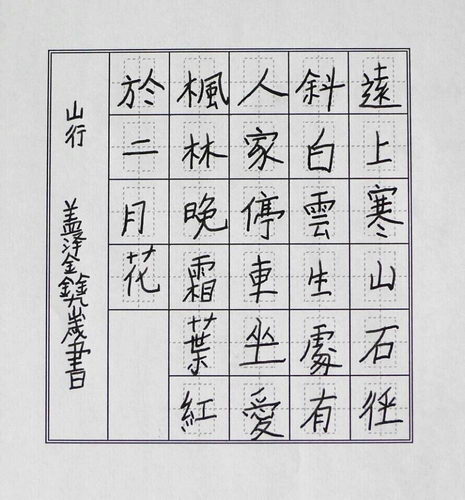 遠上寒山石徑
斜白雲生處有
人家停車坐愛
楓林晚霜葉紅
於二月花
山行 盖泽鑫九歲書